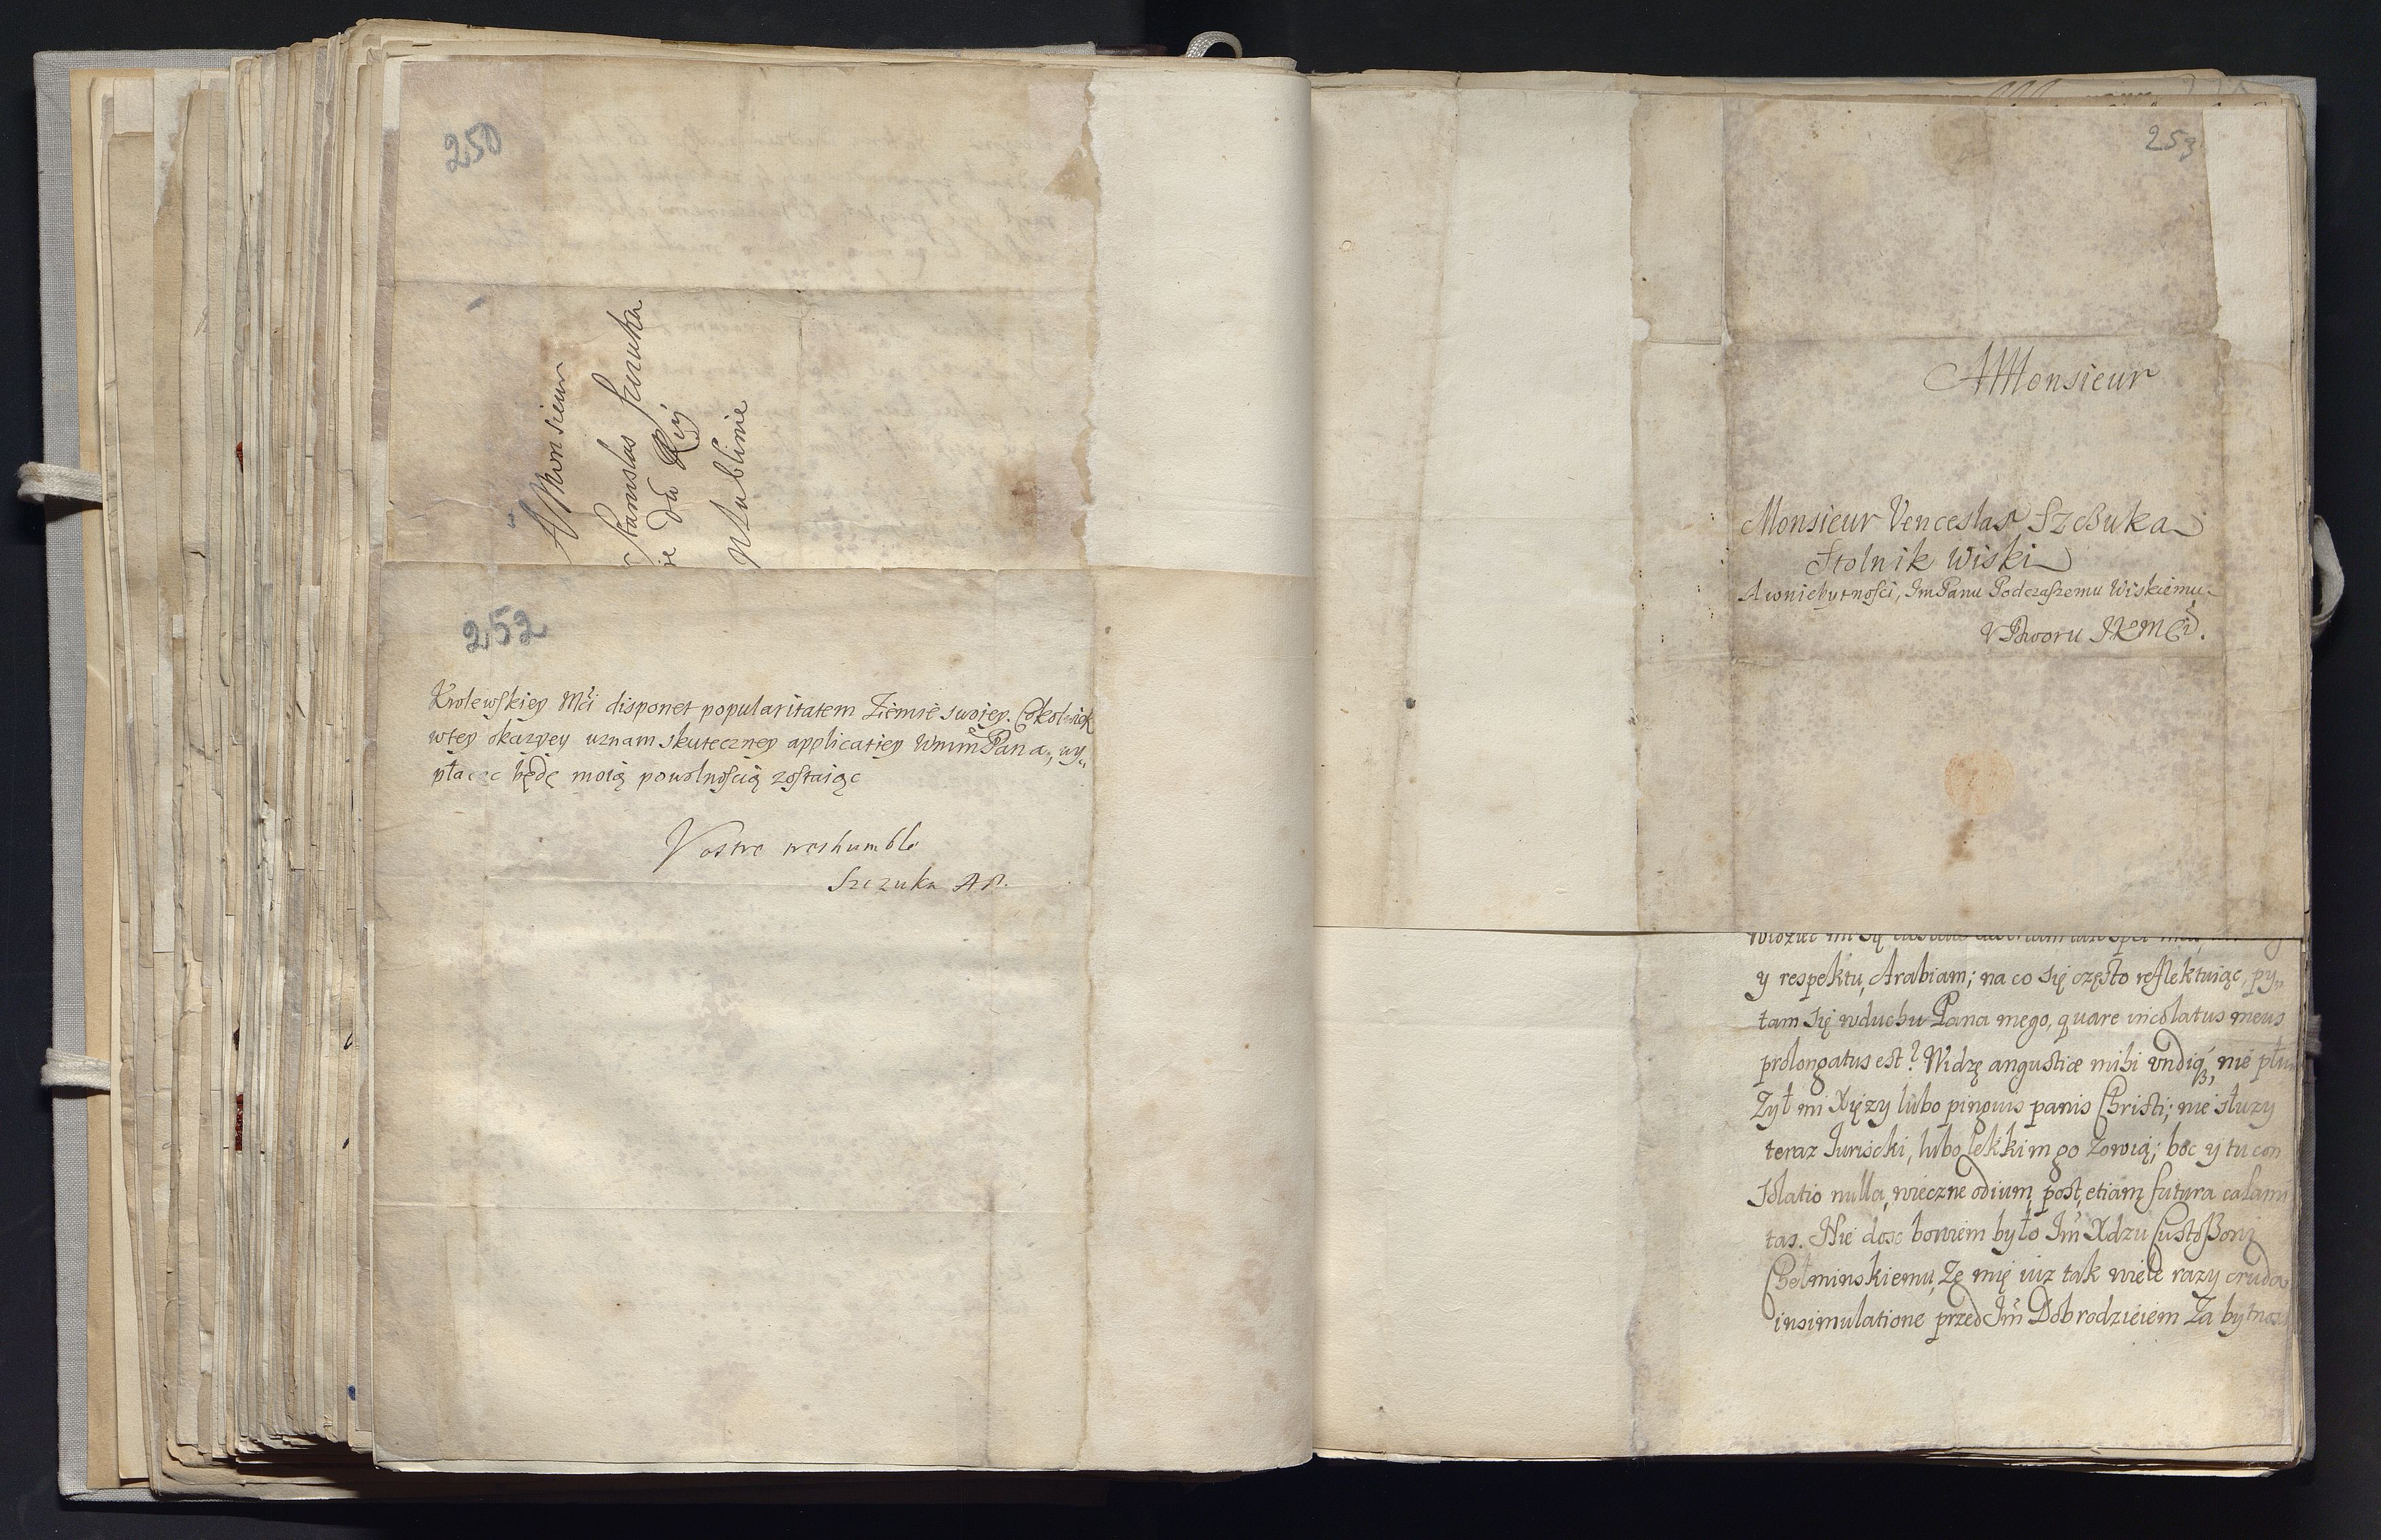 250
A Monsieur
Stanislas Szczuka
du Roy
w Lublinie
252
Krolewskiey Mći disponet popularitatem Ziemie swoiey. Cokolwiek
wtey okazyey uznam skuteczney applicatiey WmmPana, wy„
płacac będę moią powolnością zostaiąc
Vostre treshumble
Szczuka
253
A Monsieur
Monsieur Venceslas Szczuka
Stolnik Wiski
A wniebytnosci, Im Panu Podczaszemu Wiskiemu
V Dworu JKMCi.
y respektu, Arabiam; na co się często reflektuiąc, py„
tam się wduchu Pana mego, quare incolatus meus
prolongatus est? Widzę angustiæ mihi undiq3, nie
Zył mi Xięzy lubo pinguis panis Christi; nie słuzy
teraz Juriscki, lubo lekkim go zowią; boc y tu con
solatio nulla, wieczne odium, post, etiam futura calami
tas. Nie dosc bowiem było Im Xdzu Custoszowi
Chełminskiemu, Ze mię iuz tak wiele razy cruda
insimulatione przed Im Dobrodzieiem Za bytnosci